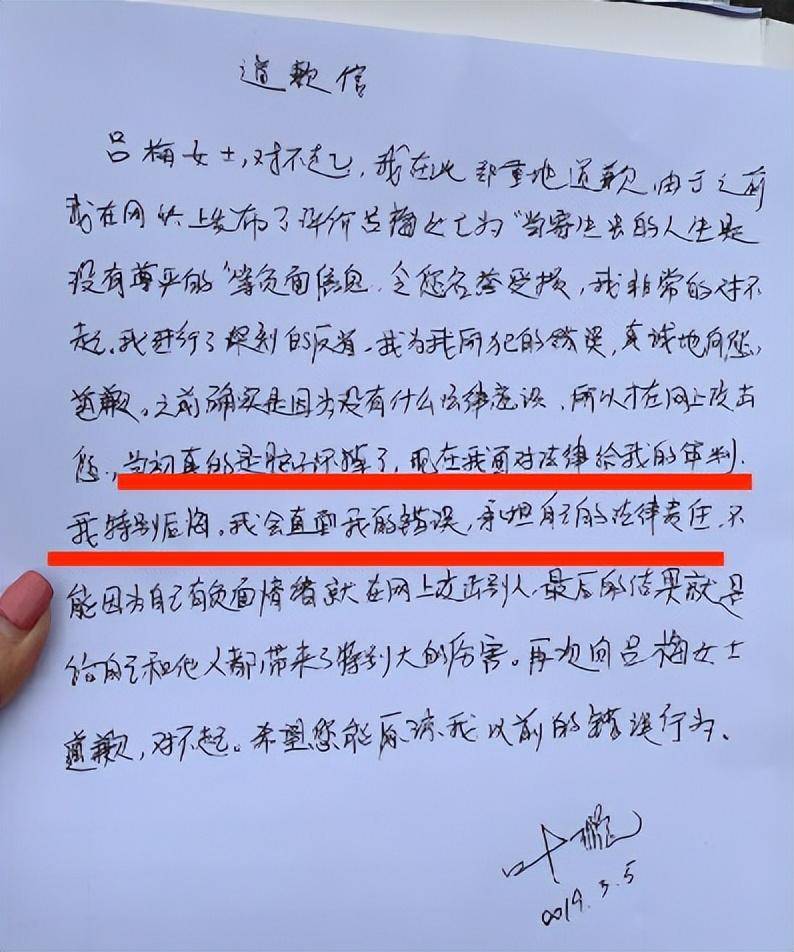 道歉信
吕梅女士,对不起,我在此郑重地道歉,由于之前
我在网络上发布了评价吕梅女士为“当寄生虫的人生是
没有尊严的”等负面信息,令您名誉受损,我非常的对不
起。我进行了深刻的反省。我为我所犯的错误,真诚地向您
道歉。之前确实是因为没有什么法律意识,所以才在网上攻击
您,当初真的是脑子坏掉了,现在我面对法律给我的审判,
我特别后悔。我会直面我的错误,承担自己的法律责任,不
能因为自己有负面情绪就在网上攻击别人,最后的结果就是
给自己和他人都带来了特别大的伤害。再次向吕梅女士
道歉,对不起。希望您能原谅我以前的错误行为。
叶
2019.3.5